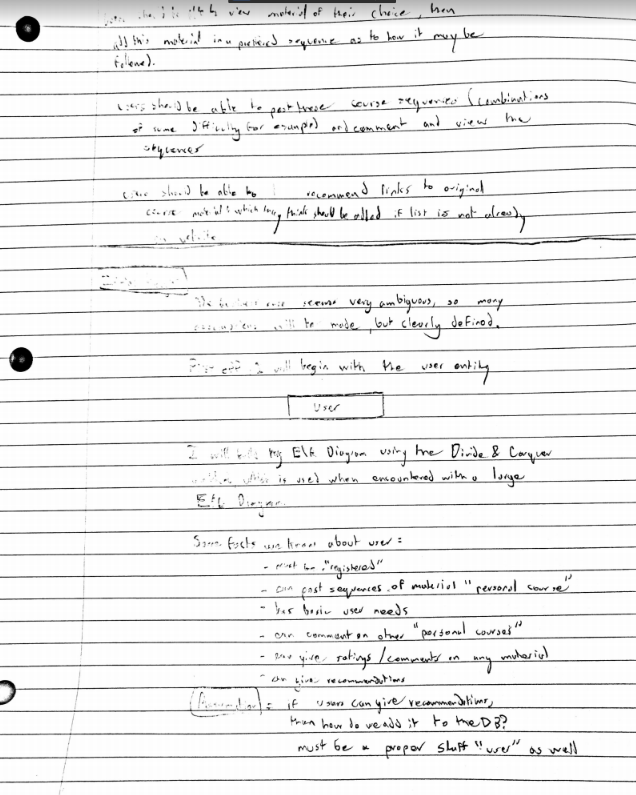 view material of their choice, then
add this material in a prefered sequence as to how it may be
followed.
users should be able to post these course sequences (combinations
of some difficulty for example) and comment and view the
sequences
should be able to recommend links to original
course material which they think should be added if list is not already
website
seems very ambiguous, so many
will be made, but clearly defined.
I will begin with the user entity
User
I will my E\R Diagram using the Divide & Conquer
is used when encountered with a large
E\R Diagram
Some facts we know about user:
- must be "registered"
- can post sequences of material "personal course"
- has basic user needs
- can comment on other "personal courses"
- can give ratings/comments on any material
- can give recommendations
Assumption: if users can give recommendations,
then how do we add it to the DB?
must be a proper staff "user" as well